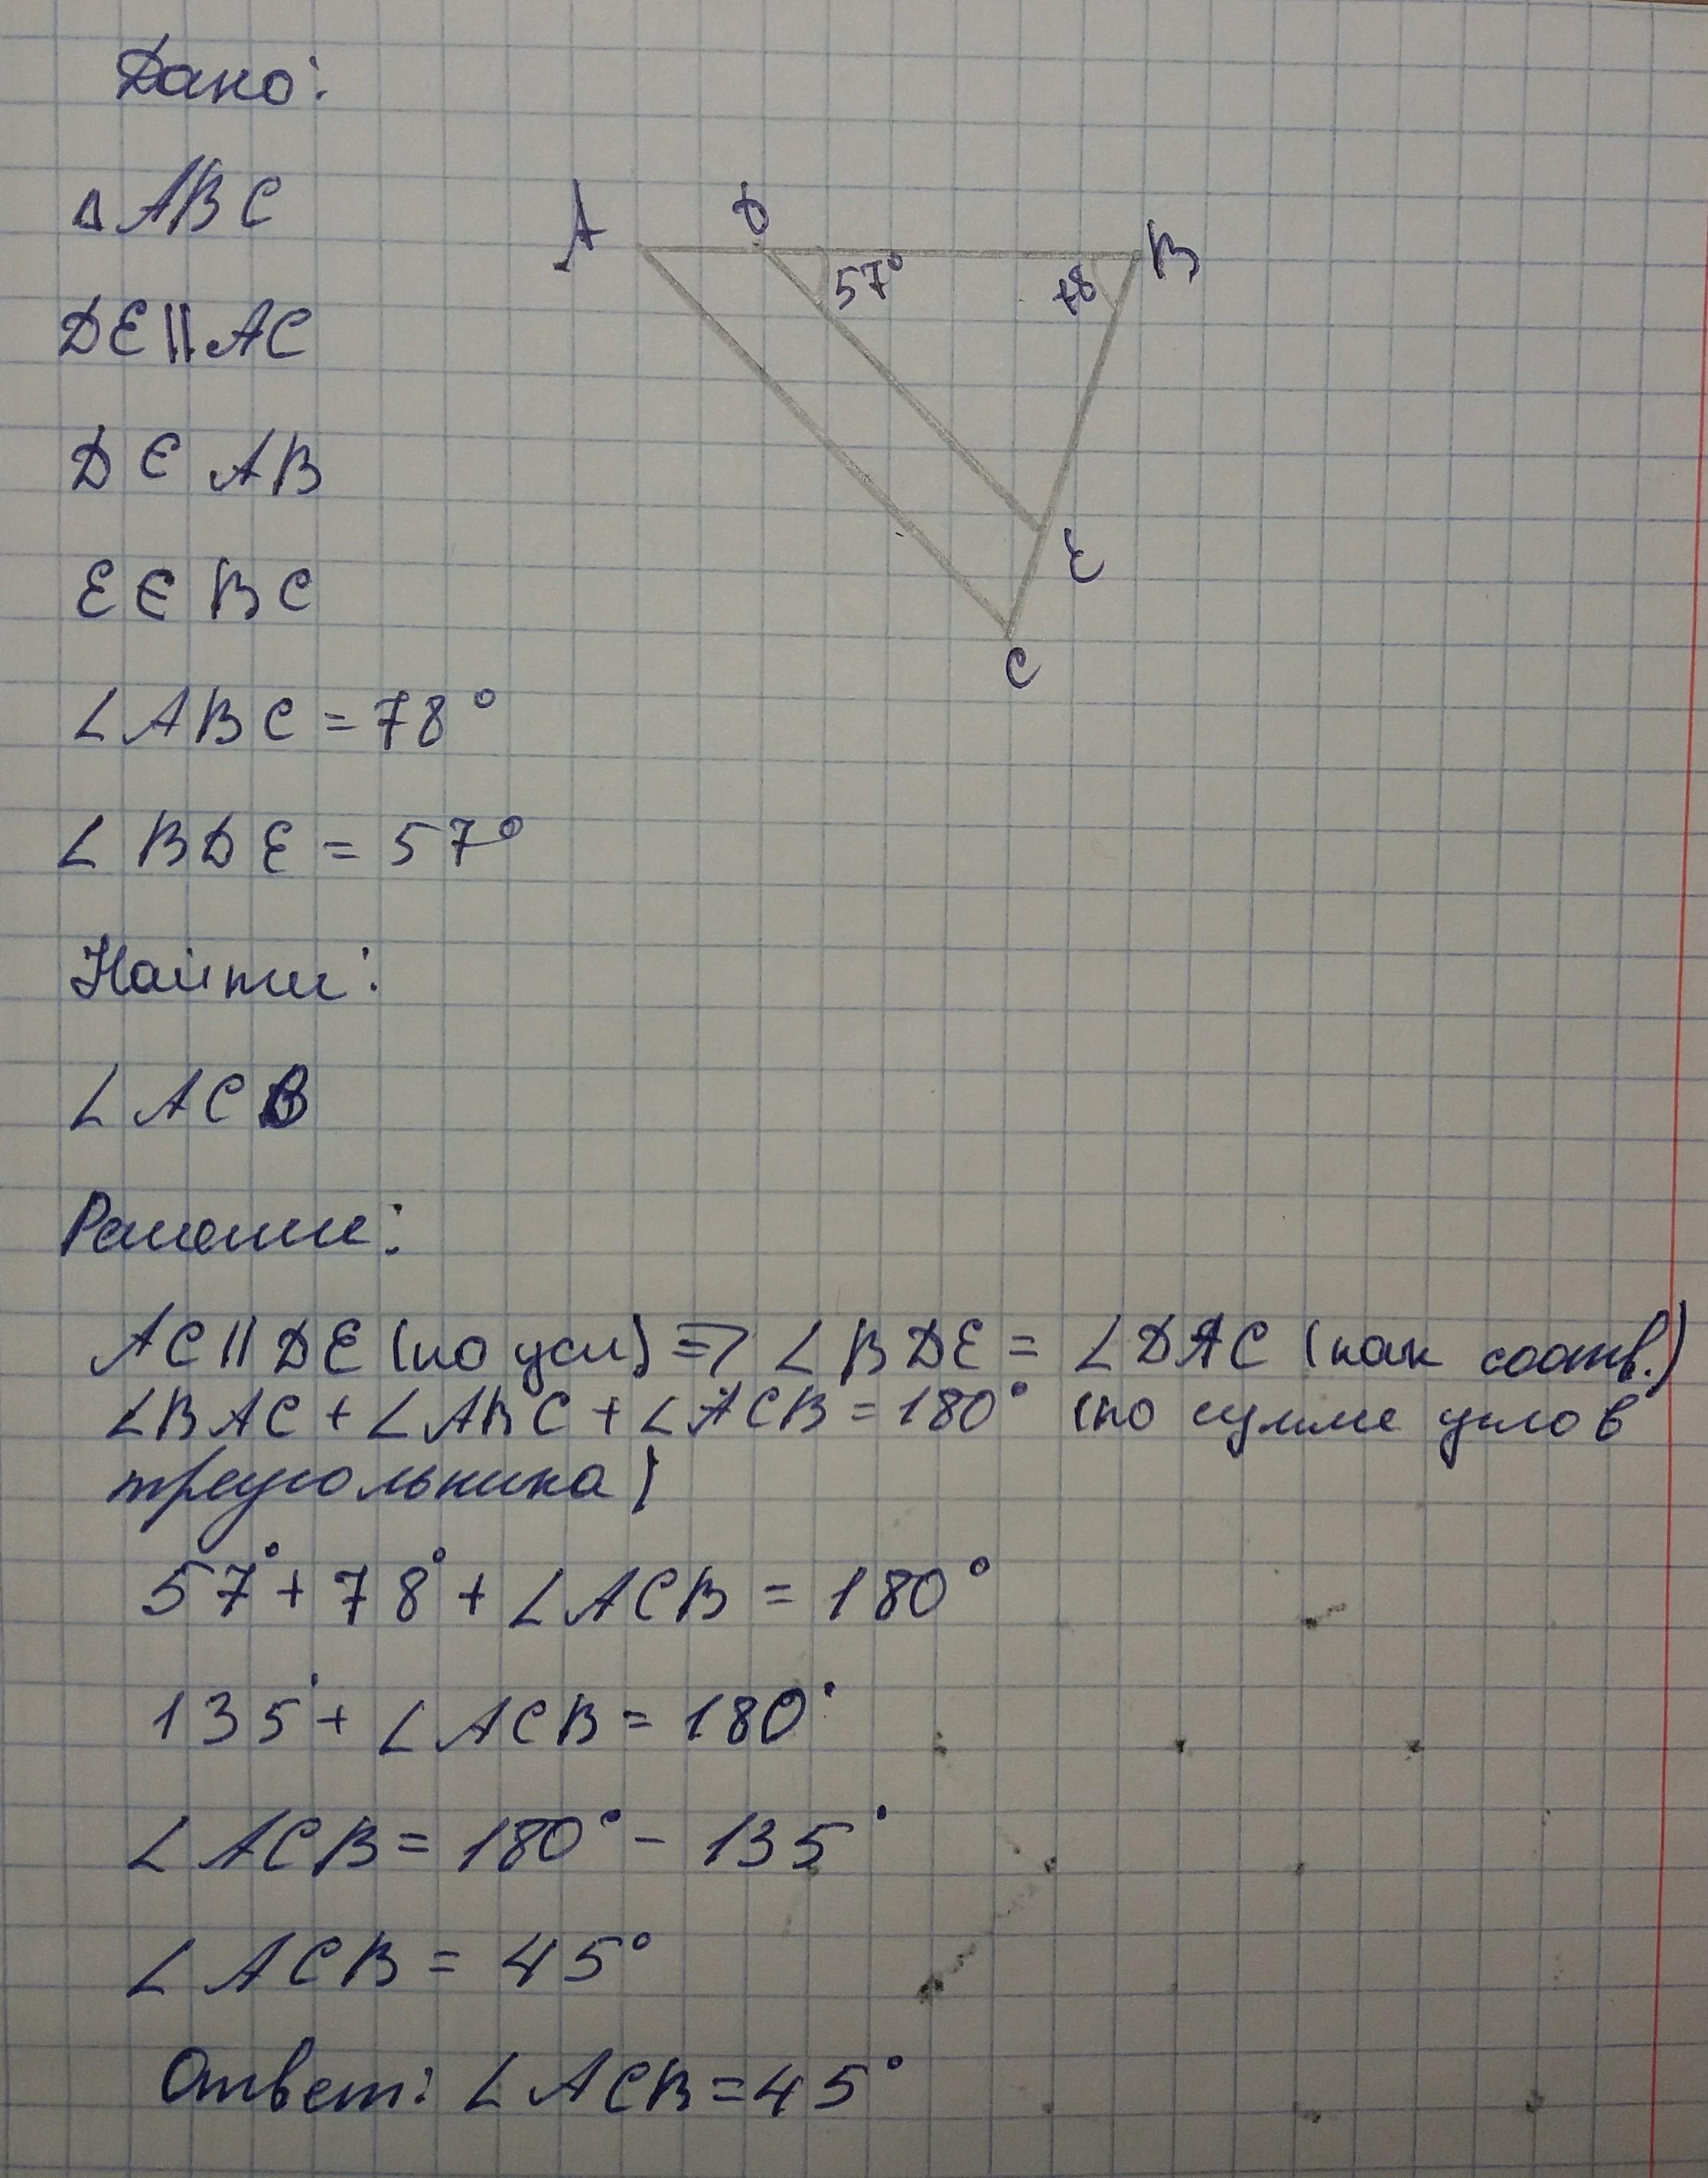 Дано:
△ABC
DE||AC
D ∈ AB
E ∈ BC
∠ABC = 78°
∠BDE = 57°
Найти:
∠ACB
Решение:
AC || DE (по усл) => ∠BDE = ∠DAC (как соотв.)
∠BAC + ∠ABC + ∠ACB = 180° (по сумме углов
треугольника)
57° + 78° + ∠ACB = 180°
135° + ∠ACB = 180°
∠ACB = 180° - 135°
∠ACB = 45°
Ответ: ∠ACB = 45°
A
D
B
57°
78
E
C